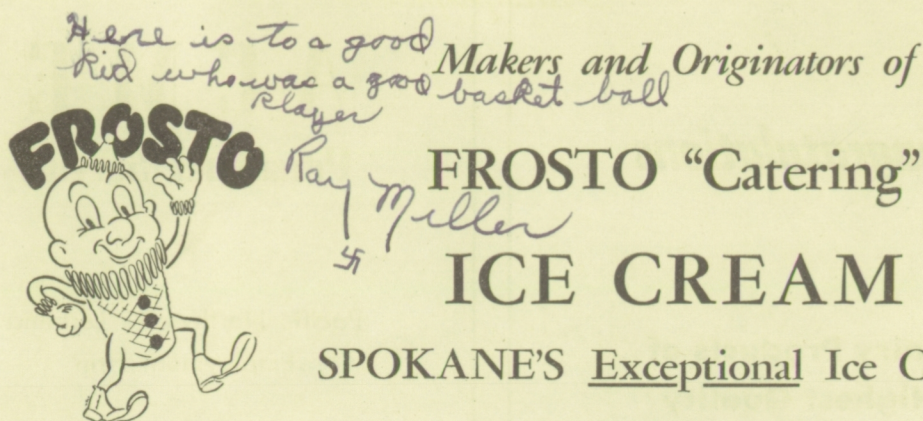 Here is to a good
kid who was a good basket ball
player
Ray Miller
卐
Makers and Originators of
FROSTO
FROSTO “Catering”
ICE CREAM
SPOKANE'S Exceptional Ice C